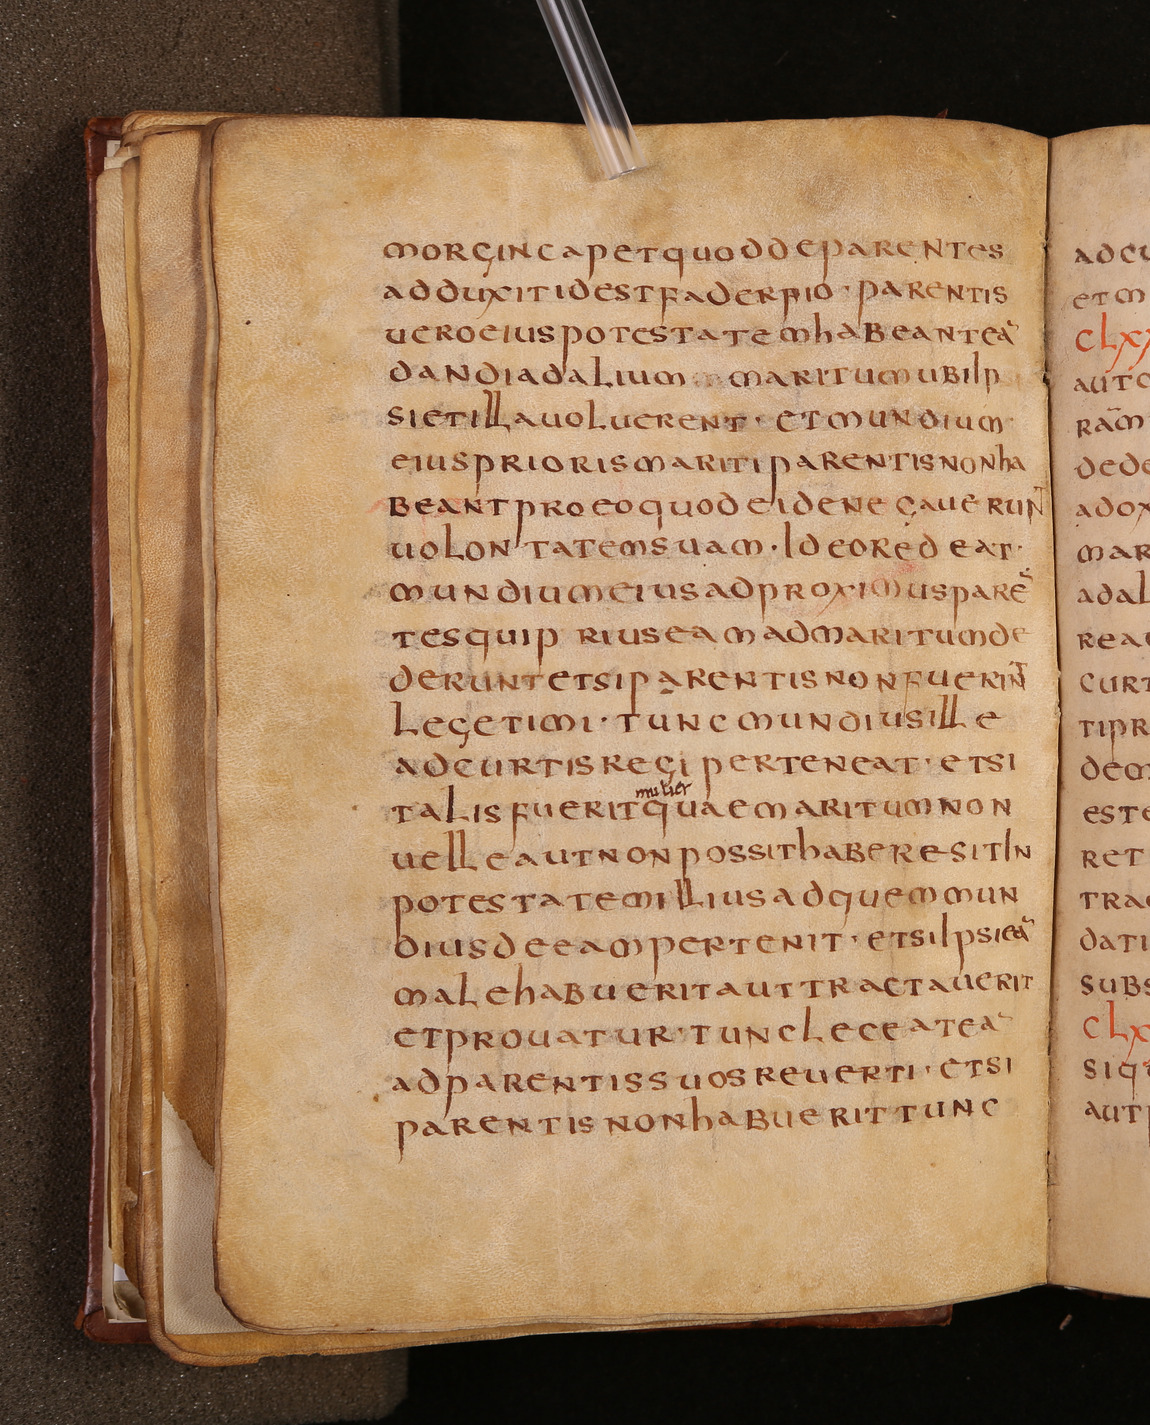 morgincapetquoddeparentes
adduxitidestfaderfio · parentis
ueroeiuspotestatemhabeanteā
dandiadalium maritumubiIp
sietillauoluerent · etmundium
eiuspriorismaritiparentisnonha
beantproeoquodeidenegauerunt̄
uolontatemsuam · Ideoredeat ·
mundiumeiusadproximusparē
tesquip riuseamadmaritumde
derunt etsiparentisnonfuerint̄
legetimi · tuncmundiusille
adcurtisregi perteneat · etsi
mulier
talisfueritquaemaritumnon
uelleautnonpossithaberesitIn
potestatemilliusadquemmun
diusdeeampertenit · etsiIpsieā
malehabueritauttractauerit
etprouatur · tuncleceateā
adparentissuosreuerti · etsi
parentisnonhabuerittunc
adcu
etm
clxx
auto
rām
dede
adox
mar
adal
reau
curt
tipr
dem
este
ret
tra
dati
subs
clx
siq
aut